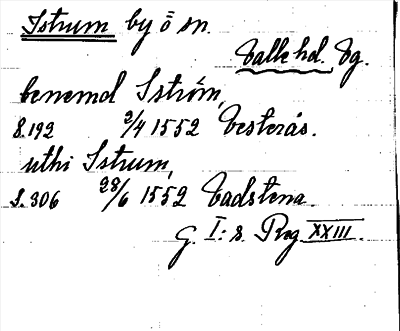 Istrum by ö sn.
Valle hd. Vg.
benemd Iström,
S. 192 2/4 1552 Vesterås.
uthi Istrum,
S. 306 28/6 1552 Vadstena.
G. I:s. Reg XXIII.